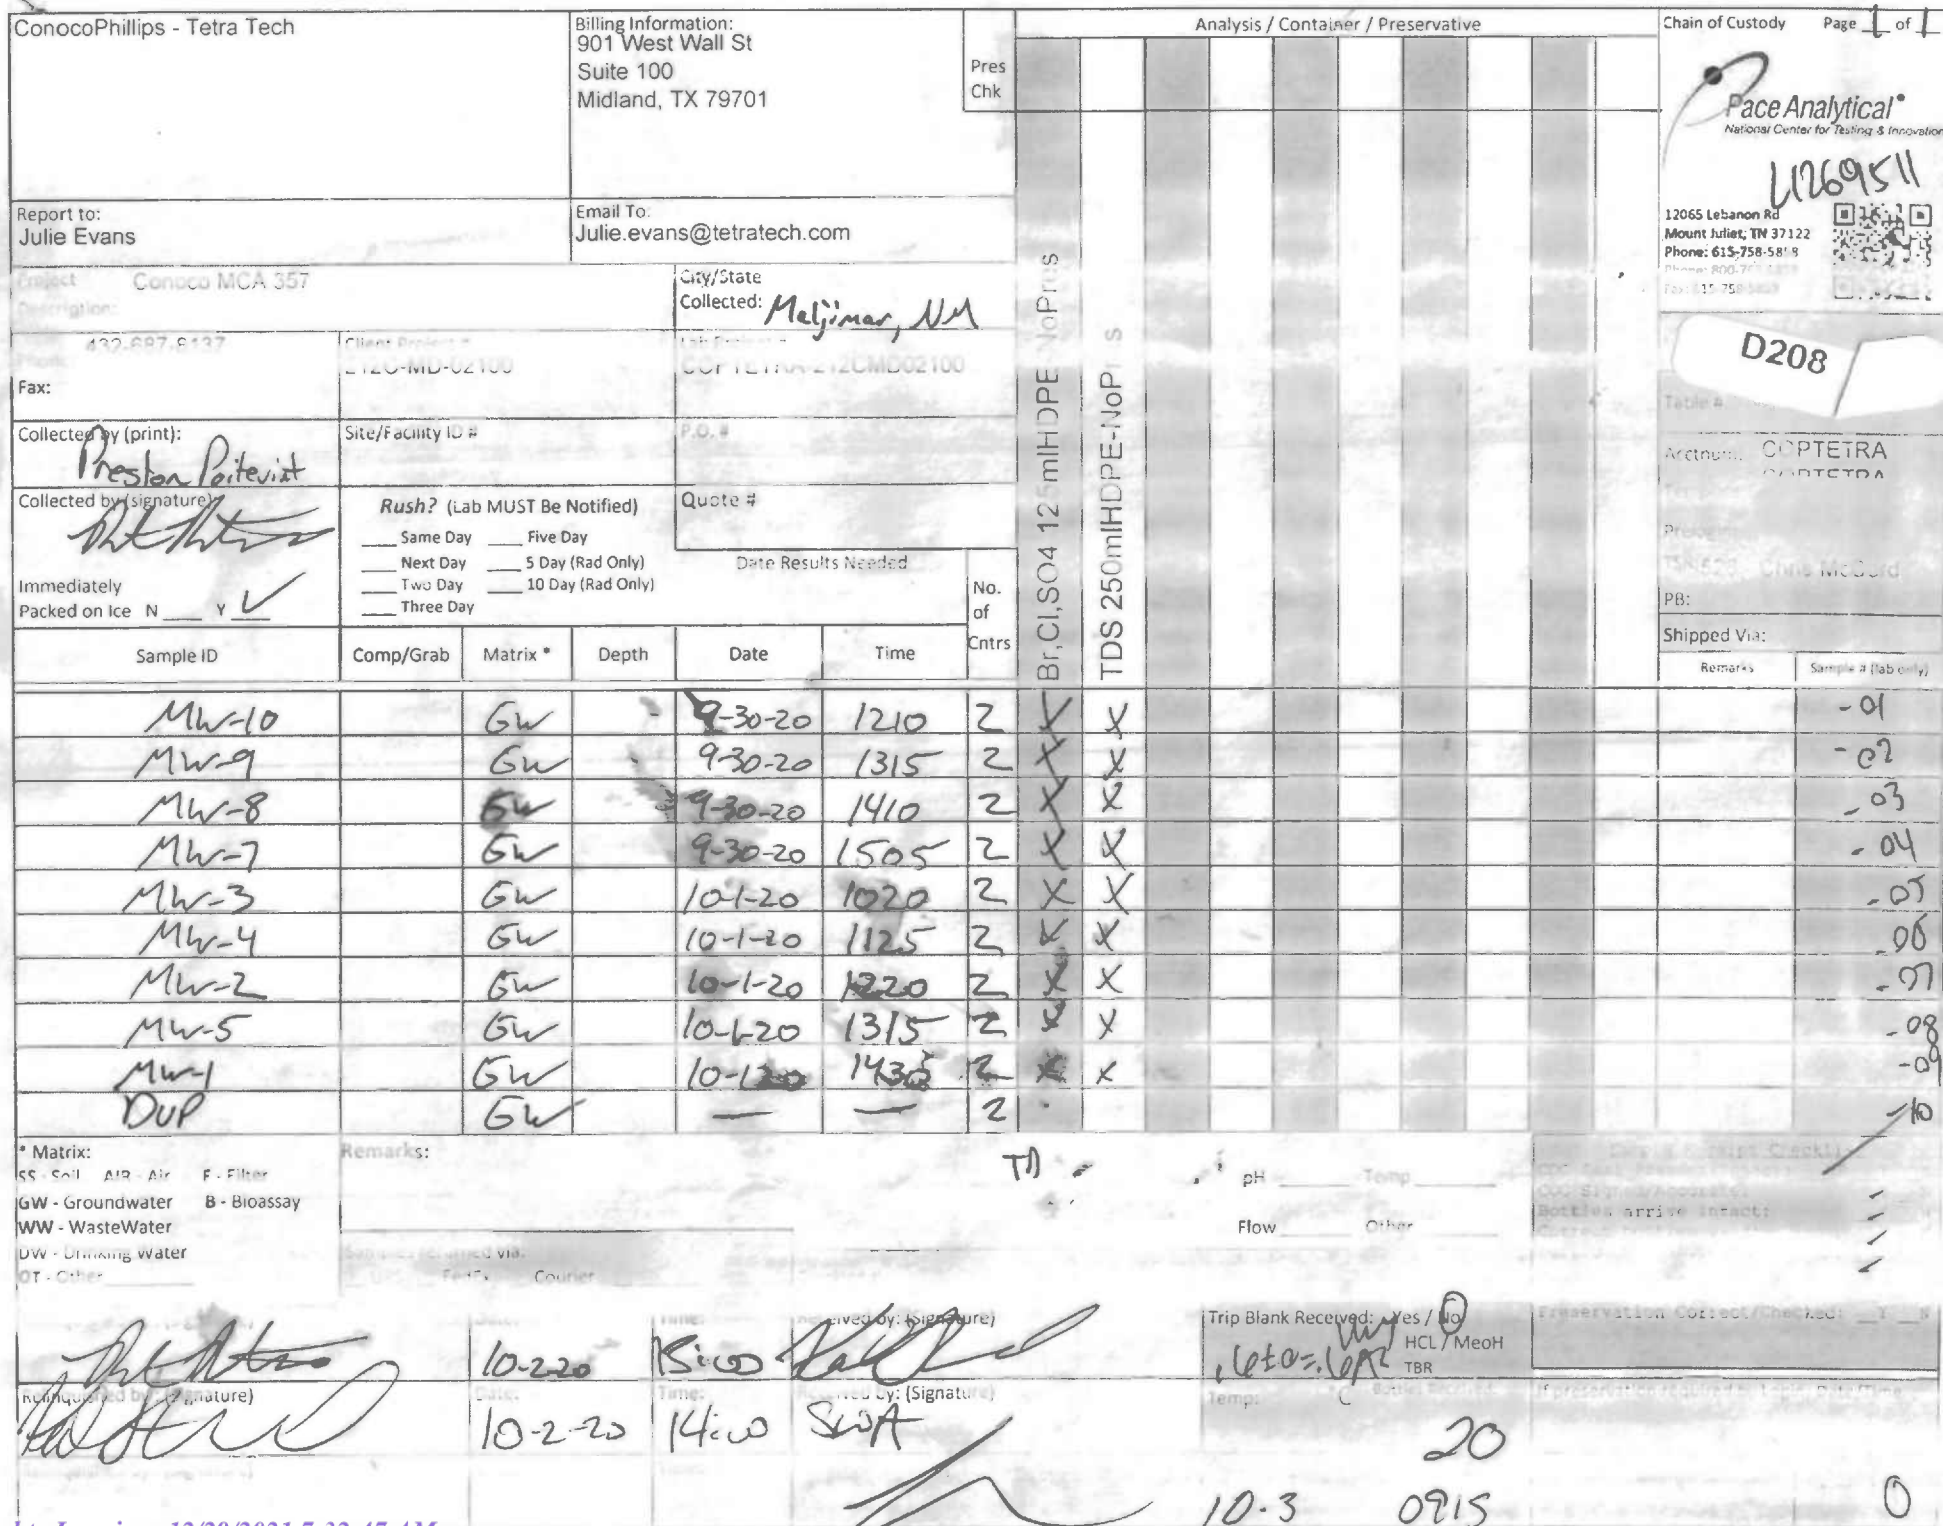 ConocoPhillips - Tetra Tech
Billing Information:
901 West Wall St
Suite 100
Midland, TX 79701
Pres
Chk
Analysis / Container / Preservative
Chain of Custody Page 1 of 1
Pace Analytical®
National Center for Testing & Innovation
L1269511
12065 Lebanon Rd
Mount Juliet, TN 37122
Phone: 615-758-5858
Report to:
Julie Evans
Email To:
Julie.evans@tetratech.com
Project
Description:
Conoco MCA 357
City/State
Collected: Maljimar, NM
Phone: 432-687-8137
Client Project #
212C-MD-02100
Lab Project #
COPTETRA-212CMD02100
Fax:
D208
Table #
Collected by (print):
Preston Poitevint
Site/Facility ID #
P.O. #
Acctnum: COPTETRA
Collected by (signature)
Rush? (Lab MUST Be Notified)
Same Day Five Day
Next Day 5 Day (Rad Only)
Two Day 10 Day (Rad Only)
Three Day
Quote #
Date Results Needed
Immediately
Packed on Ice N Y ✓
No.
of
Cntrs
Br,Cl,SO4 125mlHDPE NoPres
TDS 250mlHDPE-NoPres
PB:
Shipped Via:
Sample ID Comp/Grab Matrix * Depth Date Time
Remarks Sample # (lab only)
MW-10 GW 9-30-20 1210 2 X X -01
MW-9 GW 9-30-20 1315 2 X X -02
MW-8 GW 9-30-20 1410 2 X X -03
MW-7 GW 9-30-20 1505 2 X X -04
MW-3 GW 10-1-20 1020 2 X X -05
MW-4 GW 10-1-20 1125 2 X X -06
MW-2 GW 10-1-20 1220 2 X X -07
MW-5 GW 10-1-20 1315 2 X X -08
MW-1 GW 10-1-20 2 X X -09
DUP GW — — 2 -10
* Matrix:
SS - Soil AIR - Air F - Filter
GW - Groundwater B - Bioassay
WW - WasteWater
DW - Drinking Water
OT - Other
Remarks:
pH Temp
Flow Other
Bottles arrive intact:
FedEx Courier
Date: Time: Received by: (Signature)
10-2-20
Trip Blank Received: Yes / No
HCL / MeoH
TBR
Preservation Correct/Checked: Y N
Relinquished by: (Signature)
Date: Time: Received by: (Signature)
10-2-20 14:00
Temp: °C Bottles Received:
20
If preservation required by Login: Date/Time
10-3 0915
0
12/20/2021 7:32:47 AM